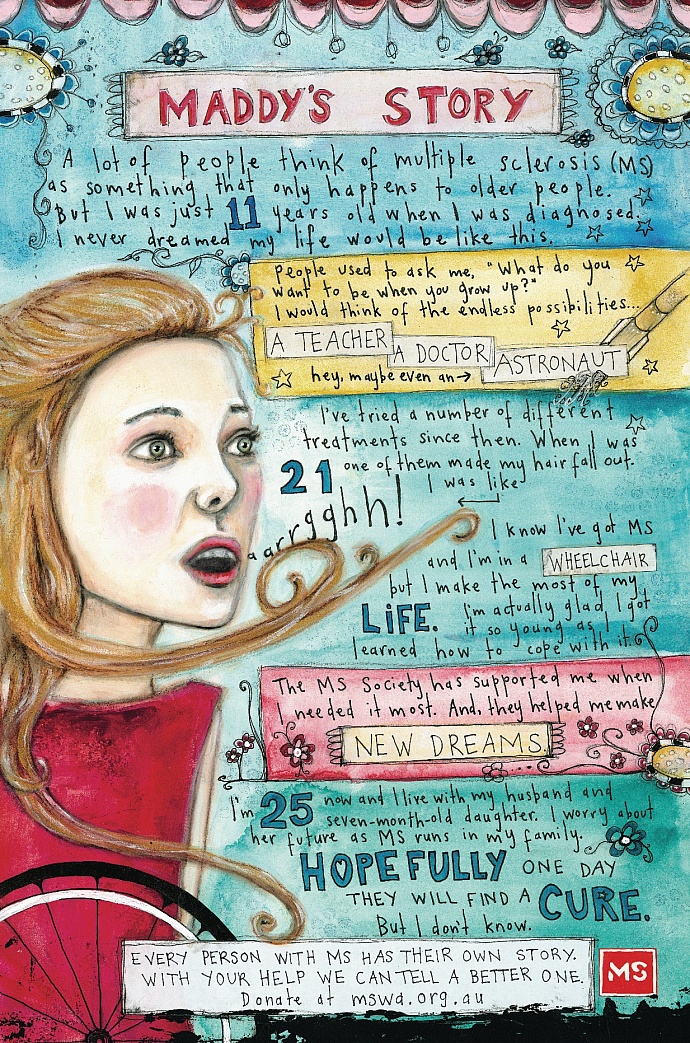 MADDY'S STORY
A lot of people think of multiple sclerosis (MS)
as something that only happens to older people.
But I was just 11 years old when I was diagnosed.
I never dreamed my life would be like this.
People used to ask me, "What do you
want to be when you grow up?"
I would think of the endless possibilities...
A TEACHER A DOCTOR ASTRONAUT
hey, maybe even an →
I've tried a number of different
treatments since then. When I was
21 one of them made my hair fall out.
I was like
aarrgghh!
I know I've got MS
and I'm in a WHEELCHAIR
but I make the most of my
LiFE. I'm actually glad, I got
it so young as I
learned how to cope with it.
The MS Society has supported me when
I needed it most. And, they helped me make
NEW DREAMS.
I'm 25 now and I live with my husband and
seven-month-old daughter. I worry about
her future as MS runs in my family.
HOPEFULLY ONE DAY
THEY WILL FIND A CURE.
But I don't know.
EVERY PERSON WITH MS HAS THEIR OWN STORY.
WITH YOUR HELP WE CAN TELL A BETTER ONE.
Donate at mswa.org.au
MS